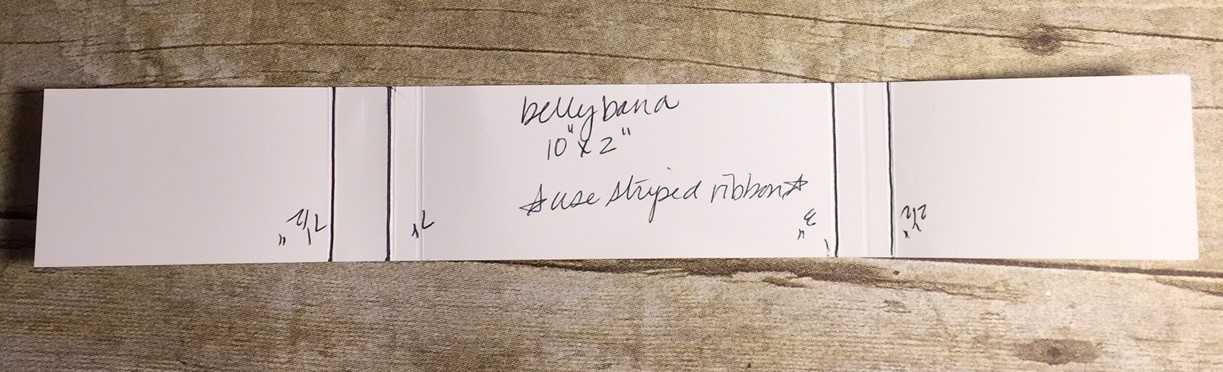 bellyband
10" x 2"
☆use striped ribbon☆
7 1/2"
7"
3"
2 1/2"